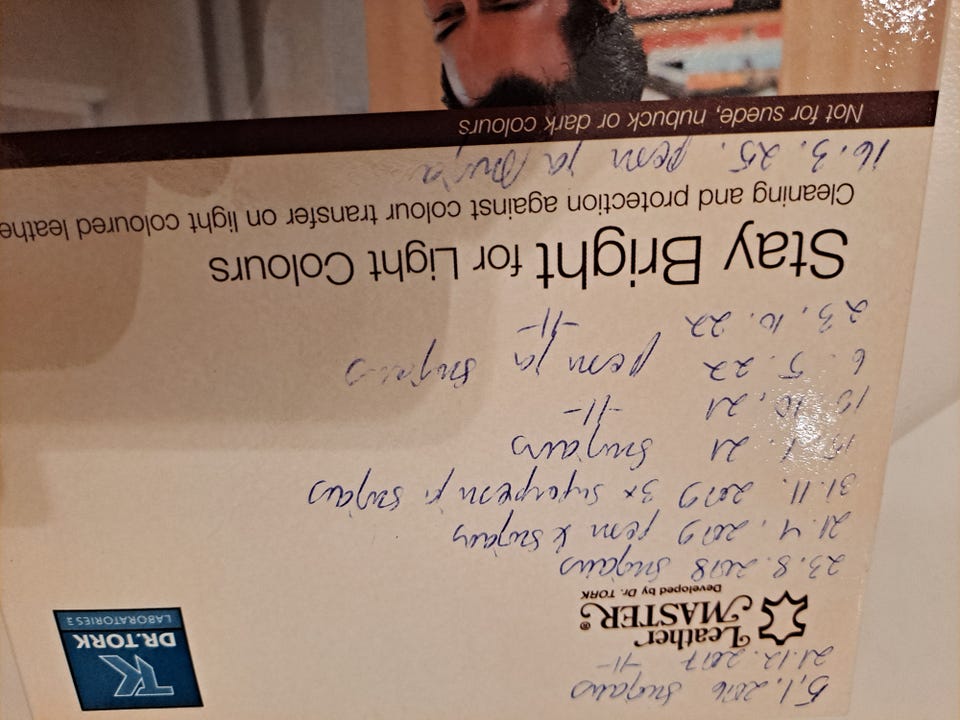 5.1.2016 suojaus
21.12.2017 -11-
Leather
MASTER®
Developed by Dr. TORK
TK
DR.TORK
LABORATORIES
23.8.2018 suojaus
21.4.2019 pesu & suojaus
31.11.2019 3x superpesu ja suojaus
21 suojaus
10.21 -11-
6.5.22 pesu ja suojaus
23.10.22 -11-
Stay Bright for Light Colours
Cleaning and protection against colour transfer on light coloured leathe
16.3.25. pesu ja suoja
Not for suede, nubuck or dark colours